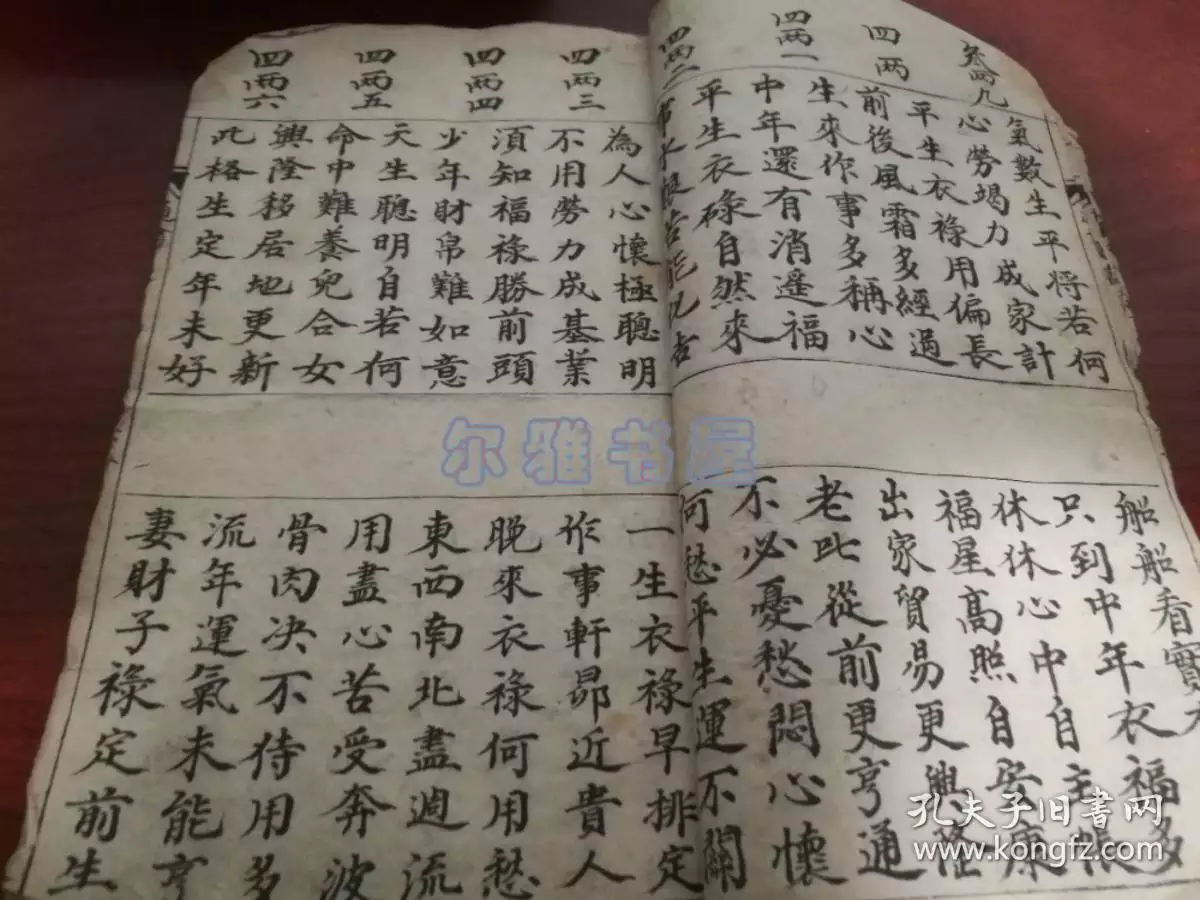 叁两九
四两
四两一
四两二
氣數生平將若何
心勞竭力成家計
平生衣祿用偏長
前後風霜多經過
生來作事多稱心
中年還有消遙福
平生衣碌自然來
苦能
船船看寶
只到中年衣福多
休休心中自主帳
福星高照自安康
出家貿易更興隆
老此從前更亨通
不必憂愁悶心懷
何愁平生運不關
四两三
四两四
四两五
四两六
為人心懷極聰明
不用勞力成基業
須知福祿勝前頭
少年財帛難如意
天生聰明自若何
命中難養兒合女
興隆移居地更新
此格生定年未好
一生衣祿早排定
作事軒昂近貴人
晚來衣祿何用愁
東西南北盡週流
用盡心苦受奔波
骨肉决不待用多
流年運氣未能亨
妻財子祿定前生
尔雅书屋
孔夫子旧书网
www.kongfz.com